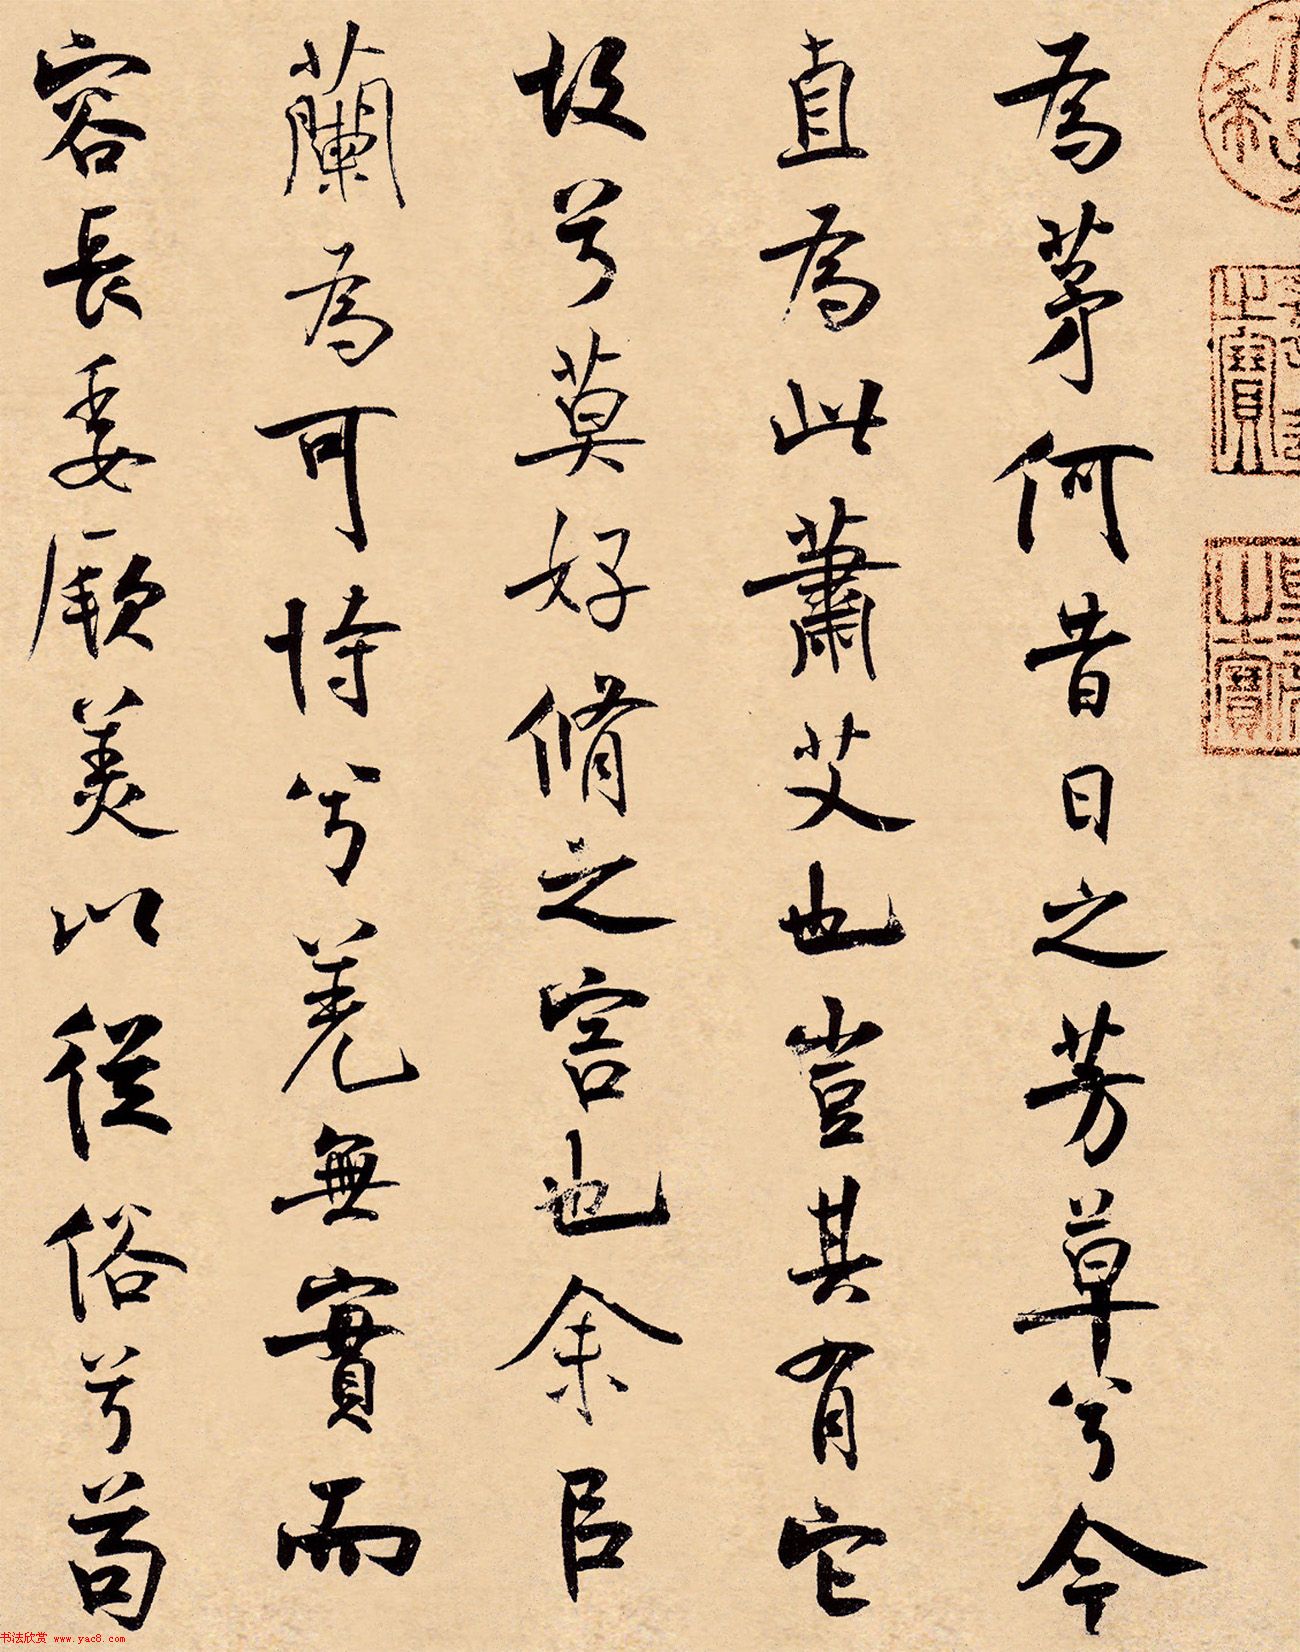 為茅何昔日之芳草兮今
直為此蕭艾也豈其有它
故兮莫好脩之害也余㠯
蘭為可恃兮羌無實而
容長委厥美以從俗兮苟
之寶
書法欣赏 www.yac8.com